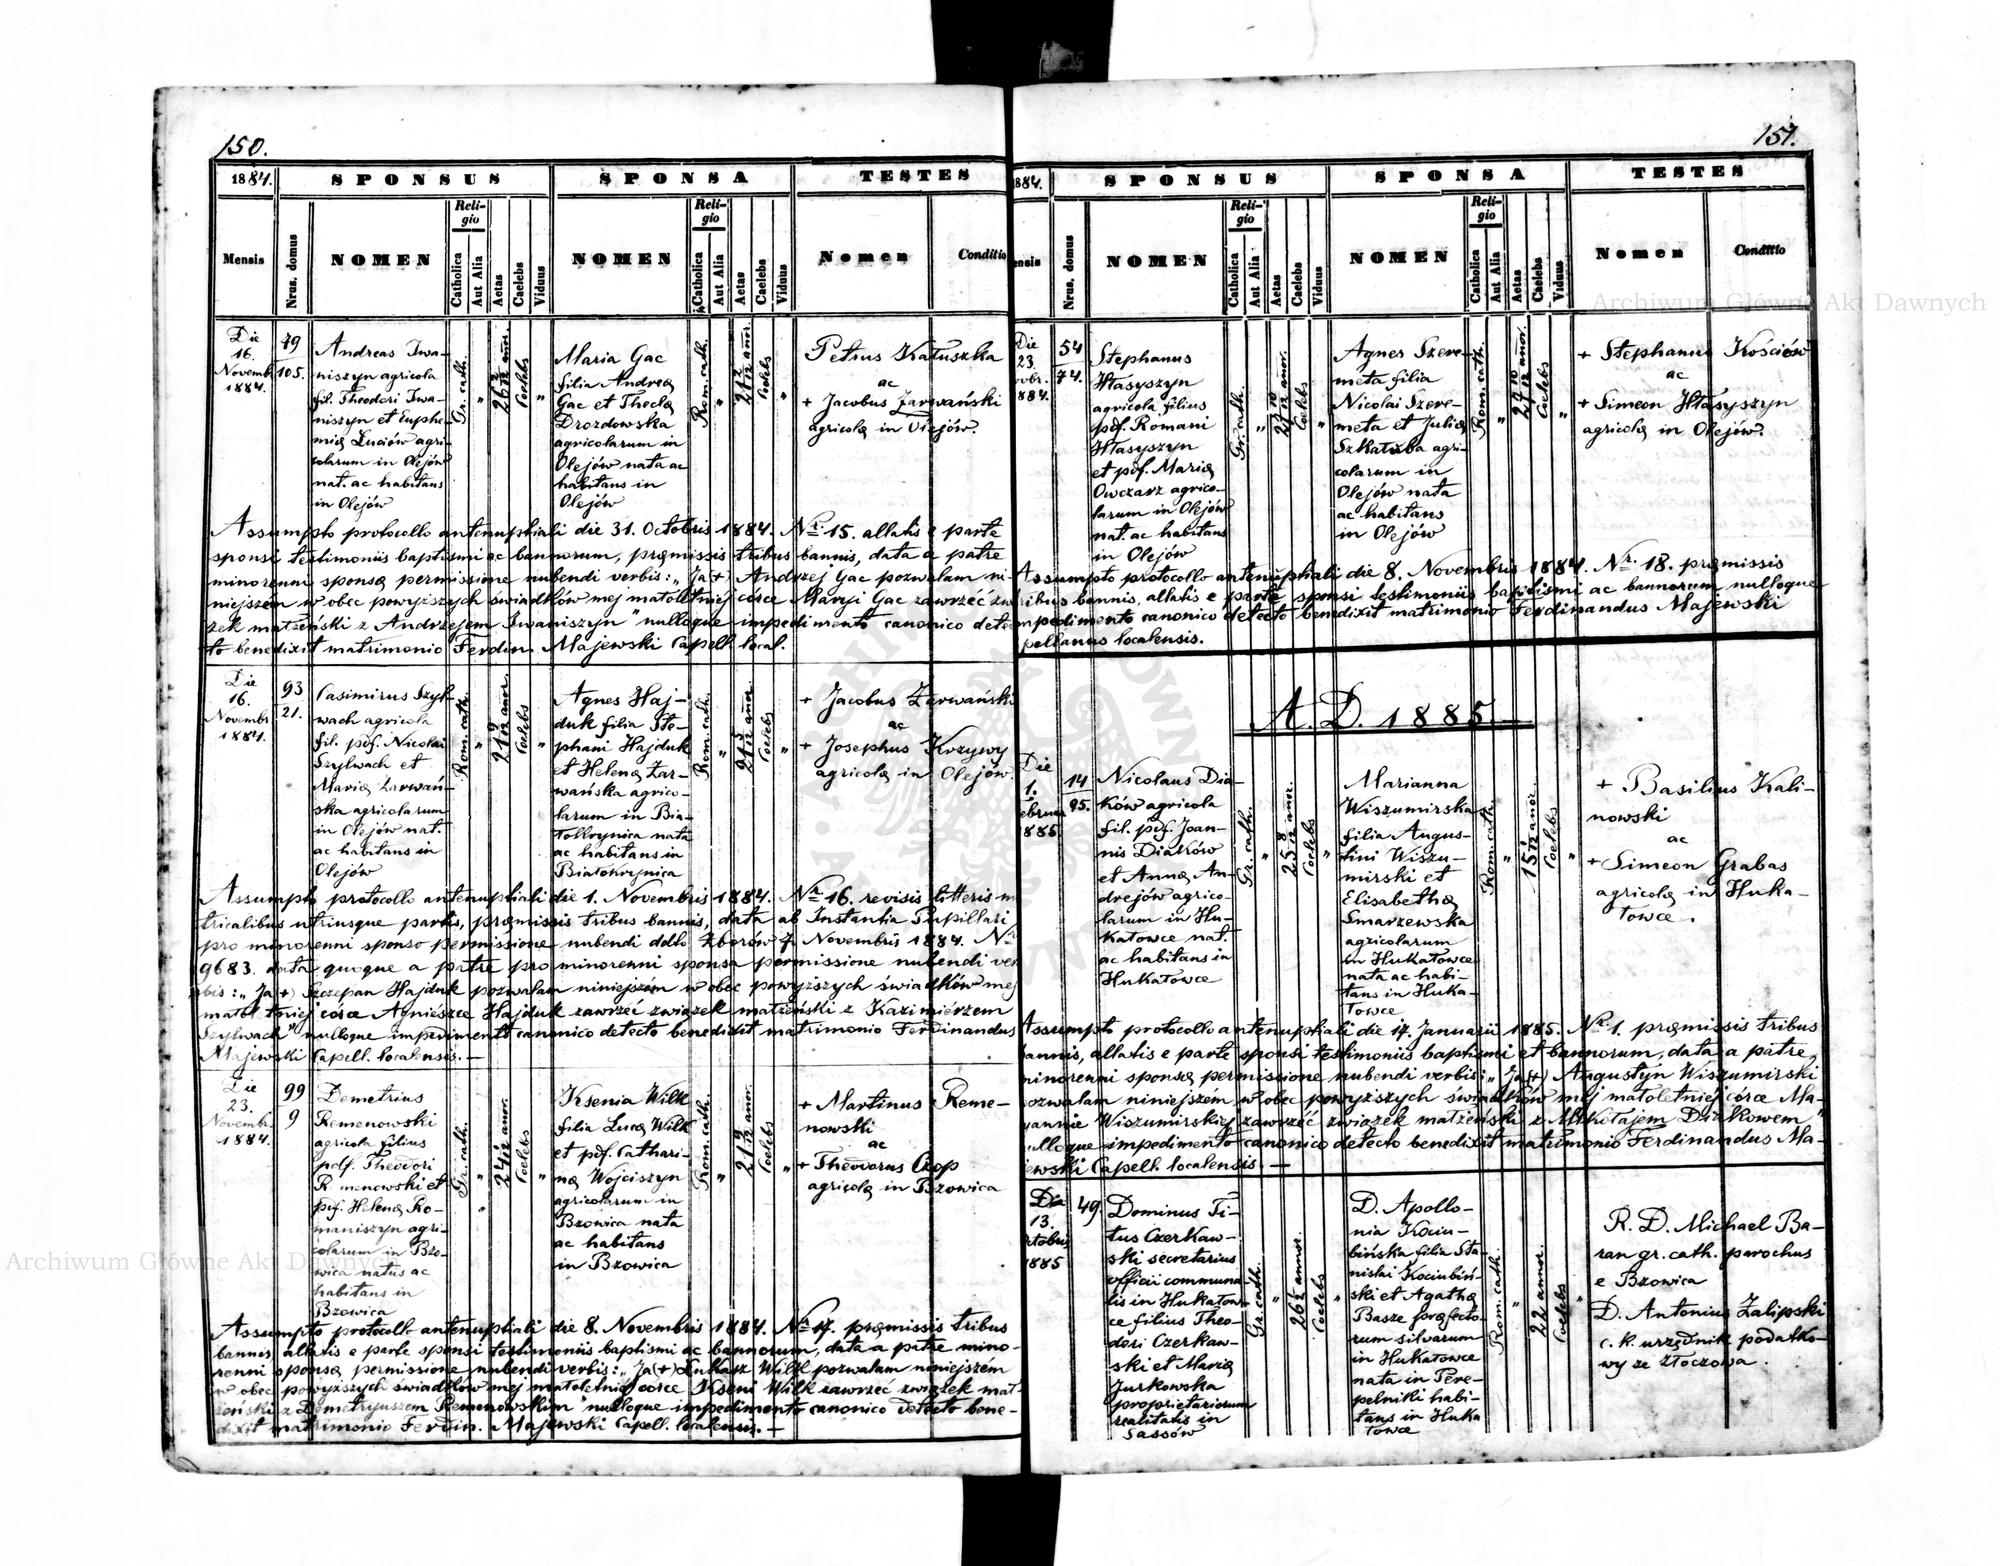 150.
1884.
SPONSUS
SPONSA
TESTES
Mensis
Nrus. domus
NOMEN
Religio
Catholica
Aut Alia
Aetas
Caelebs
Viduus
NOMEN
Religio
Catholica
Aut Alia
Aetas
Caelebs
Viduus
Nomen
Conditio
Die
16.
Novemb.
1884.
79
105.
Andreas Iwa-
niszyn agricola
fil. Theodori Iwa-
niszyn et Euphe-
mię Łuciów agri-
colarum in Olejów
nat. ac habitans
in Olejów
Gr. cath.
"
26 2/12 anor.
Coelebs
"
Maria Gac
filia Andreę
Gac et Theclę
Drozdowska
agricolarum in
Olejów nata ac
habitans in
Olejów
Rom. cath.
"
21 2/12 anor.
Coelebs
"
Petrus Kałuszka
ac
+ Jacobus Zarwański
agricolę in Olejów.
Assumpto protocollo antenuptiali die 31. Octobris 1884. Nr. 15. allatis e parte
sponsi testimoniis baptismi ac bannorum, pręmissis tribus bannis, data a patre
minorenni sponsę permissione nubendi verbis: „Ja (+) Andrzej Gac pozwalam ni-
niejszem w obec powyższych świadków mej małoletniej córce Maryi Gac zawrzeć zwią
zek małżeński z Andrzejem Iwaniszyn" nulloque impedimento canonico detec
to benedixit matrimonio Ferdin. Majewski Capell. local.
Die
16.
Novembr.
1884.
93
21.
Casimirus Szyl-
wach agricola
fil. pdf. Nicolai
Szylwach et
Marię Zarwań-
ska agricolarum
in Olejów nat.
ac habitans in
Olejów
Rom. cath.
"
21 9/12 anor.
Coelebs
"
Agnes Haj-
duk filia Ste-
phani Hajduk
et Helenę Zar-
wańska agrico-
larum in Bia-
łokrynica nata
ac habitans in
Białokrynica
Rom. cath.
"
Coelebs
"
+ Jacobus Zarwański
ac
+ Josephus Krzywy
agricolę in Olejów.
Assumpto protocollo antenuptiali die 1. Novembris 1884. Nr. 16. revisis litteris m
tricalibus utriusque partis, pręmissis tribus bannis, data ab Instantia Pupillari
pro minorenni sponso permissione nubendi ddto Zborów 7. Novembris 1884. Nr.
9683. data quoque a patre pro minorenni sponsa permissione nubendi ver
bis: „Ja (+) Szczepan Hajduk pozwalam niniejszem w obec powyższych świadków mej
małoletniej córce Agnieszce Hajduk zawrzeć związek małżeński z Kazimierzem
Szylwach" nulloque impedimento canonico detecto benedixit matrimonio Ferdinandus
Majewski Capell. localensis. —
Die
23.
Novemb.
1884.
99
9
Demetrius
Remenowski
agricola filius
pdf. Theodori
Remenowski et
pdf. Helenę Ro-
maniszyn agri-
colarum in Bzo-
wica natus ac
habitans in
Bzowica
Gr. cath.
"
Coelebs
"
Ksenia Wilk
filia Lucę Wilk
et pdf. Cathari-
nę Wojciszyn
agricolarum in
Bzowica nata
ac habitans
in Bzowica
Rom. cath.
"
21 9/12 anor.
Coelebs
"
+ Martinus Reme-
nowski
ac
+ Theodorus Czop
agricolę in Bzowica
Assumpto protocollo antenuptiali die 8. Novembris 1884. Nr. 17. pręmissis tribus
bannis, allatis e parte sponsi testimoniis baptismi ac bannorum, data a patre mino-
renni sponsę permissione nubendi verbis: „Ja (+) Łukasz Wilk pozwalam niniejszem
w obec powyższych świadków mej małoletniej córce Kseni Wilk zawrzeć związek mał-
żeński z Demetryuszem Remenowskim" nulloque impedimento canonico detecto bene-
dixit matrimonio Ferdin. Majewski Capell. localensis. —
151.
1884.
SPONSUS
SPONSA
TESTES
ensis
Nrus. domus
NOMEN
Religio
Catholica
Aut Alia
Aetas
Caelebs
Viduus
NOMEN
Religio
Catholica
Aut Alia
Aetas
Caelebs
Viduus
Nomen
Conditio
Die
23.
ovbr.
1884.
54
74.
Stephanus
Hłasyszyn
agricola filius
pdf. Romani
Hłasyszyn
et pdf. Marię
Owczarz agrico-
larum in Olejów
nat. ac habitans
in Olejów
Gr. cath.
"
Coelebs
"
Agnes Szere-
meta filia
Nicolai Szere-
meta et Julię
Szkatuba agri-
colarum in
Olejów nata
ac habitans
in Olejów
Rom. cath.
"
27 10/12 anor.
Coelebs
"
+ Stephanus Kościów
ac
+ Simeon Hłasyszyn
agricolę in Olejów.
Assumpto protocollo antenuptiali die 8. Novembris 1884. Nr. 18. pręmissis
tribus bannis, allatis e parte sponsi testimoniis baptismi ac bannorum nulloque
mpedimento canonico detecto benedixit matrimonio Ferdinandus Majewski
pellanus localensis.
A. D. 1885.
Die
1.
ebruar
1885
14
95.
Nicolaus Dia-
ków agricola
fil. pdf. Joan-
nis Diaków
et Annę An-
drejów agrico-
larum in Hu-
kałowce nat.
ac habitans in
Hukałowce
Gr. cath.
"
25 8/12 anor.
Coelebs
"
Marianna
Wiszumirska
filia Augus-
tini Wiszu-
mirski et
Elisabethę
Smarzewska
agricolarum
in Hukałowce
nata ac habi-
tans in Huka-
łowce
Rom. cath.
"
15 1/12 anor.
Coelebs
"
+ Basilius Kali-
nowski
ac
+ Simeon Grabas
agricolę in Huka-
łowce.
Assumpto protocollo antenuptiali die 17. Januarii 1885. Nr. 1. pręmissis tribus
bannis, allatis e parte sponsi testimoniis baptismi et bannorum, data a patre
minorenni sponsę permissione nubendi verbis: „Ja (+) Augustyn Wiszumirski
pozwalam niniejszem w obec powyższych świadków mej małoletniej córce Ma-
ryannie Wiszumirskiej zawrzeć związek małżeński z Mikołajem Diakowem"
nulloque impedimento canonico detecto benedixit matrimonio Ferdinandus Ma-
jewski Capell. localensis. —
Die
13.
ctobris
1885
49
Dominus Ti-
tus Czerkaw-
ski secretarius
officii communa
lis in Hukałow-
ce filius Theo-
dori Czerkaw-
ski et Marię
Jurkowska
proprietariorum
realitatis in
Sassów
Gr. cath.
"
Coelebs
"
D. Apollo-
nia Kociu-
bińska filia Sta-
nislai Kociubiń-
ski et Agathę
Basze pręfecto-
rum silvarum
in Hukałowce
nata in Pere-
pelniki habi-
tans in Huka
łowce
Rom. cath.
"
22 annor.
Coelebs
"
R. D. Michael Ba-
ran gr. cath. parochus
e Bzowica
D. Antonius Zalipski
c. k. urzędnik podatko-
wy ze Złoczowa.
Archiwum Główne Akt Dawnych
Archiwum Główne Akt Dawnych